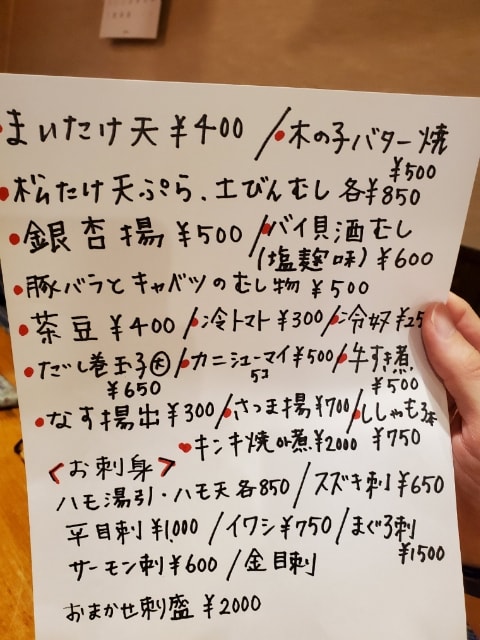 ・まいたけ天 ¥400 /・木の子バター焼 ¥500
・松たけ天ぷら、土びんむし 各¥850
・銀杏揚 ¥500 /・バイ貝酒むし (塩麹味) ¥600
・豚バラとキャベツのむし物 ¥500
・茶豆 ¥400 /・冷トマト ¥300 /・冷奴 ¥25
・だし巻玉子大 ¥650 /・カニシューマイ 5コ ¥500 /・牛すき煮 ¥500
・なす揚出 ¥300 /・さつま揚 ¥700 /・ししゃも3本 ¥750
♥キンキ焼or煮 ¥2000
<お刺身>
ハモ湯引・ハモ天 各850 / スズキ刺 ¥650
平目刺 ¥1,000 / イワシ ¥750 / まぐろ刺 ¥1500
サーモン刺 ¥600 / 金目刺
おまかせ刺盛 ¥2000